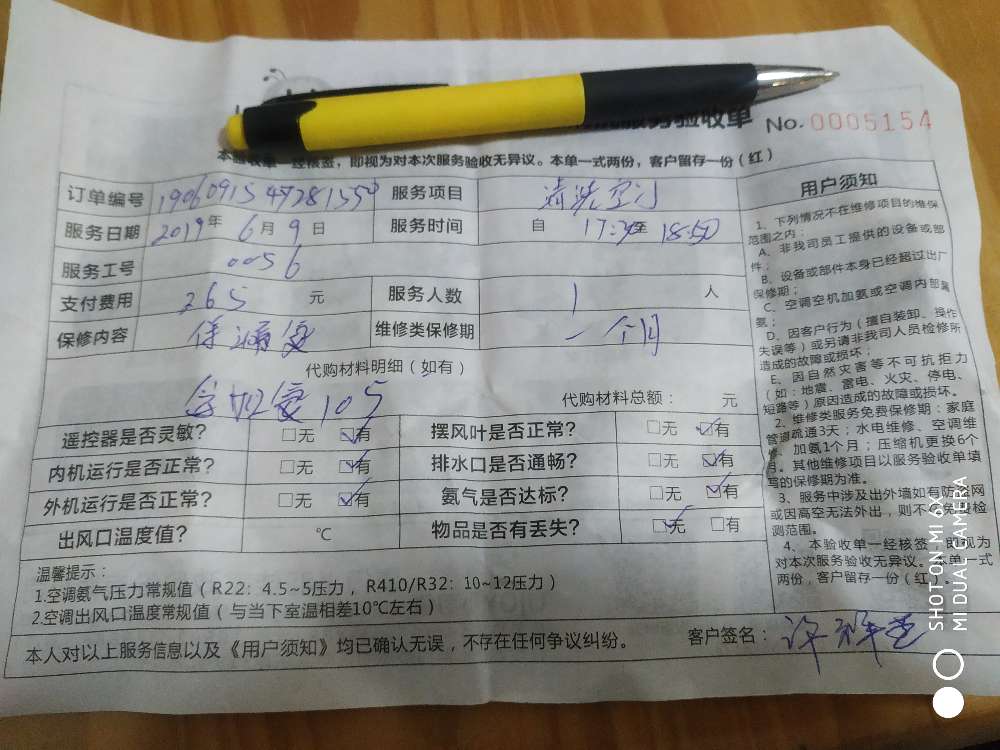 服务验收单 No. 0005154
本验收单一经核签，即视为对本次服务验收无异议。本单一式两份，客户留存一份（红）
订单编号 服务项目 清洗空调
服务日期 2019年 6月 9日 服务时间 自 17:30至 18:50
服务工号 0056
支付费用 265 元 服务人数 1 人
保修内容 维修类保修期 一个月
代购材料明细（如有）
105 代购材料总额： 元
遥控器是否灵敏？ □无 ☑有 摆风叶是否正常？ □无 ☑有
内机运行是否正常？ □无 ☑有 排水口是否通畅？ □无 ☑有
外机运行是否正常？ □无 ☑有 氨气是否达标？ □无 ☑有
出风口温度值？ ℃ 物品是否有丢失？ ☑无 □有
温馨提示：
1.空调氨气压力常规值（R22：4.5~5压力，R410/R32：10~12压力）
2.空调出风口温度常规值（与当下室温相差10℃左右）
本人对以上服务信息以及《用户须知》均已确认无误，不存在任何争议纠纷。 客户签名：
用户须知
1、下列情况不在维修项目的维保
范围之内：
A、非我司员工提供的设备或部
件；
B、设备或部件本身已经超过出厂
保修期；
C、空调空机加氨或空调内部漏
氨；
D、因客户行为（擅自装卸、操作
失误等）或另请非我司人员检修所
造成的故障或损坏；
E、因自然灾害等不可抗拒力
（如：地震、雷电、火灾、停电、
短路等）原因造成的故障或损坏。
2、维修类服务免费保修期：家庭
管道疏通3天；水电维修、空调维
修、加氨1个月；压缩机更换6个
月。其他维修项目以服务验收单填
写的保修期为准。
3、服务中涉及出外墙如有防盗网
或因高空无法外出，则不含免费检
测范围。
4、本验收单一经核签，即视为
对本次服务验收无异议。本单一式
两份，客户留存一份（红）。
SHOT ON MI 6X
MI DUAL CAMERA